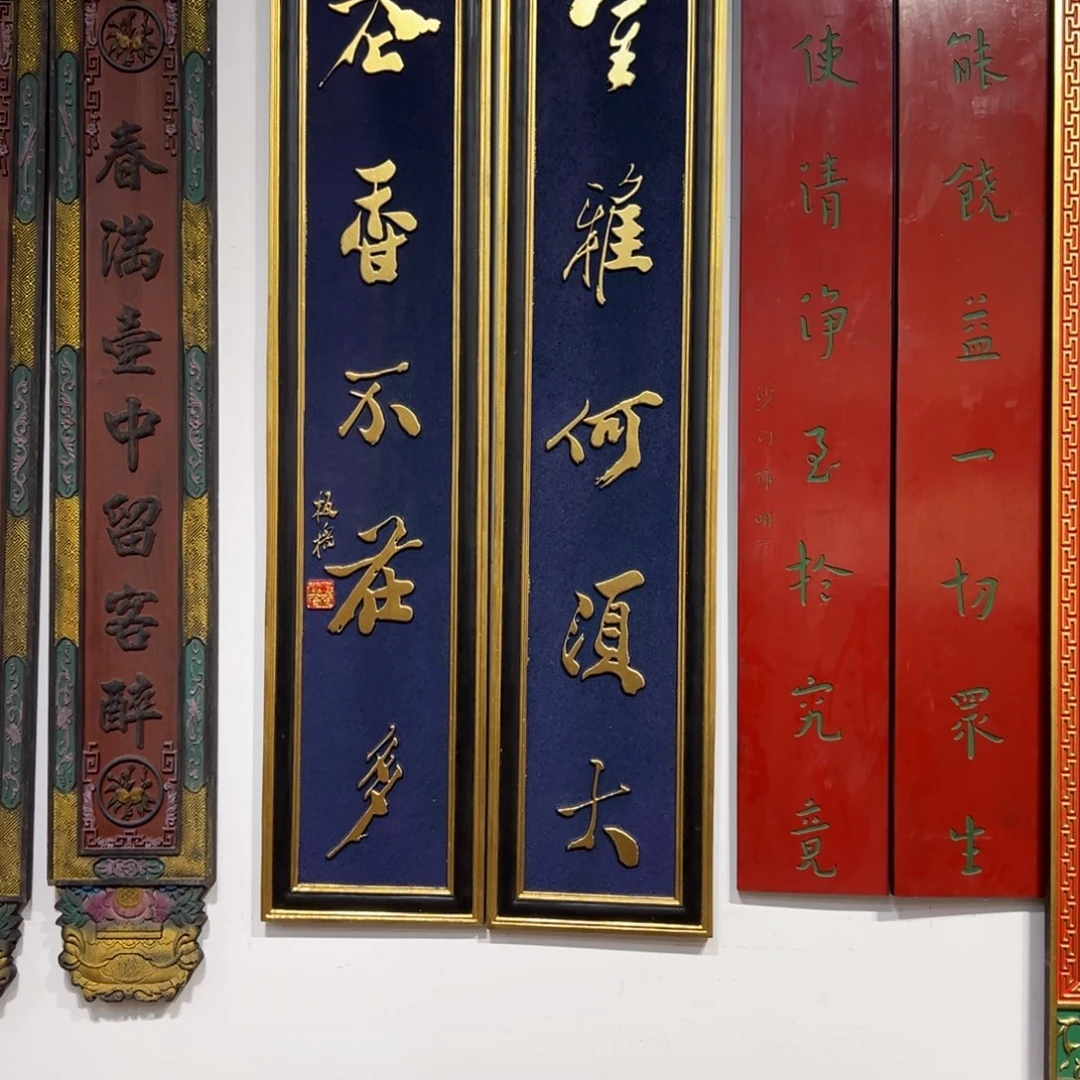 能饒益一切眾生
使清净至於究竟
室雅何須大
花香不在多
板橋
春滿壺中留客醉